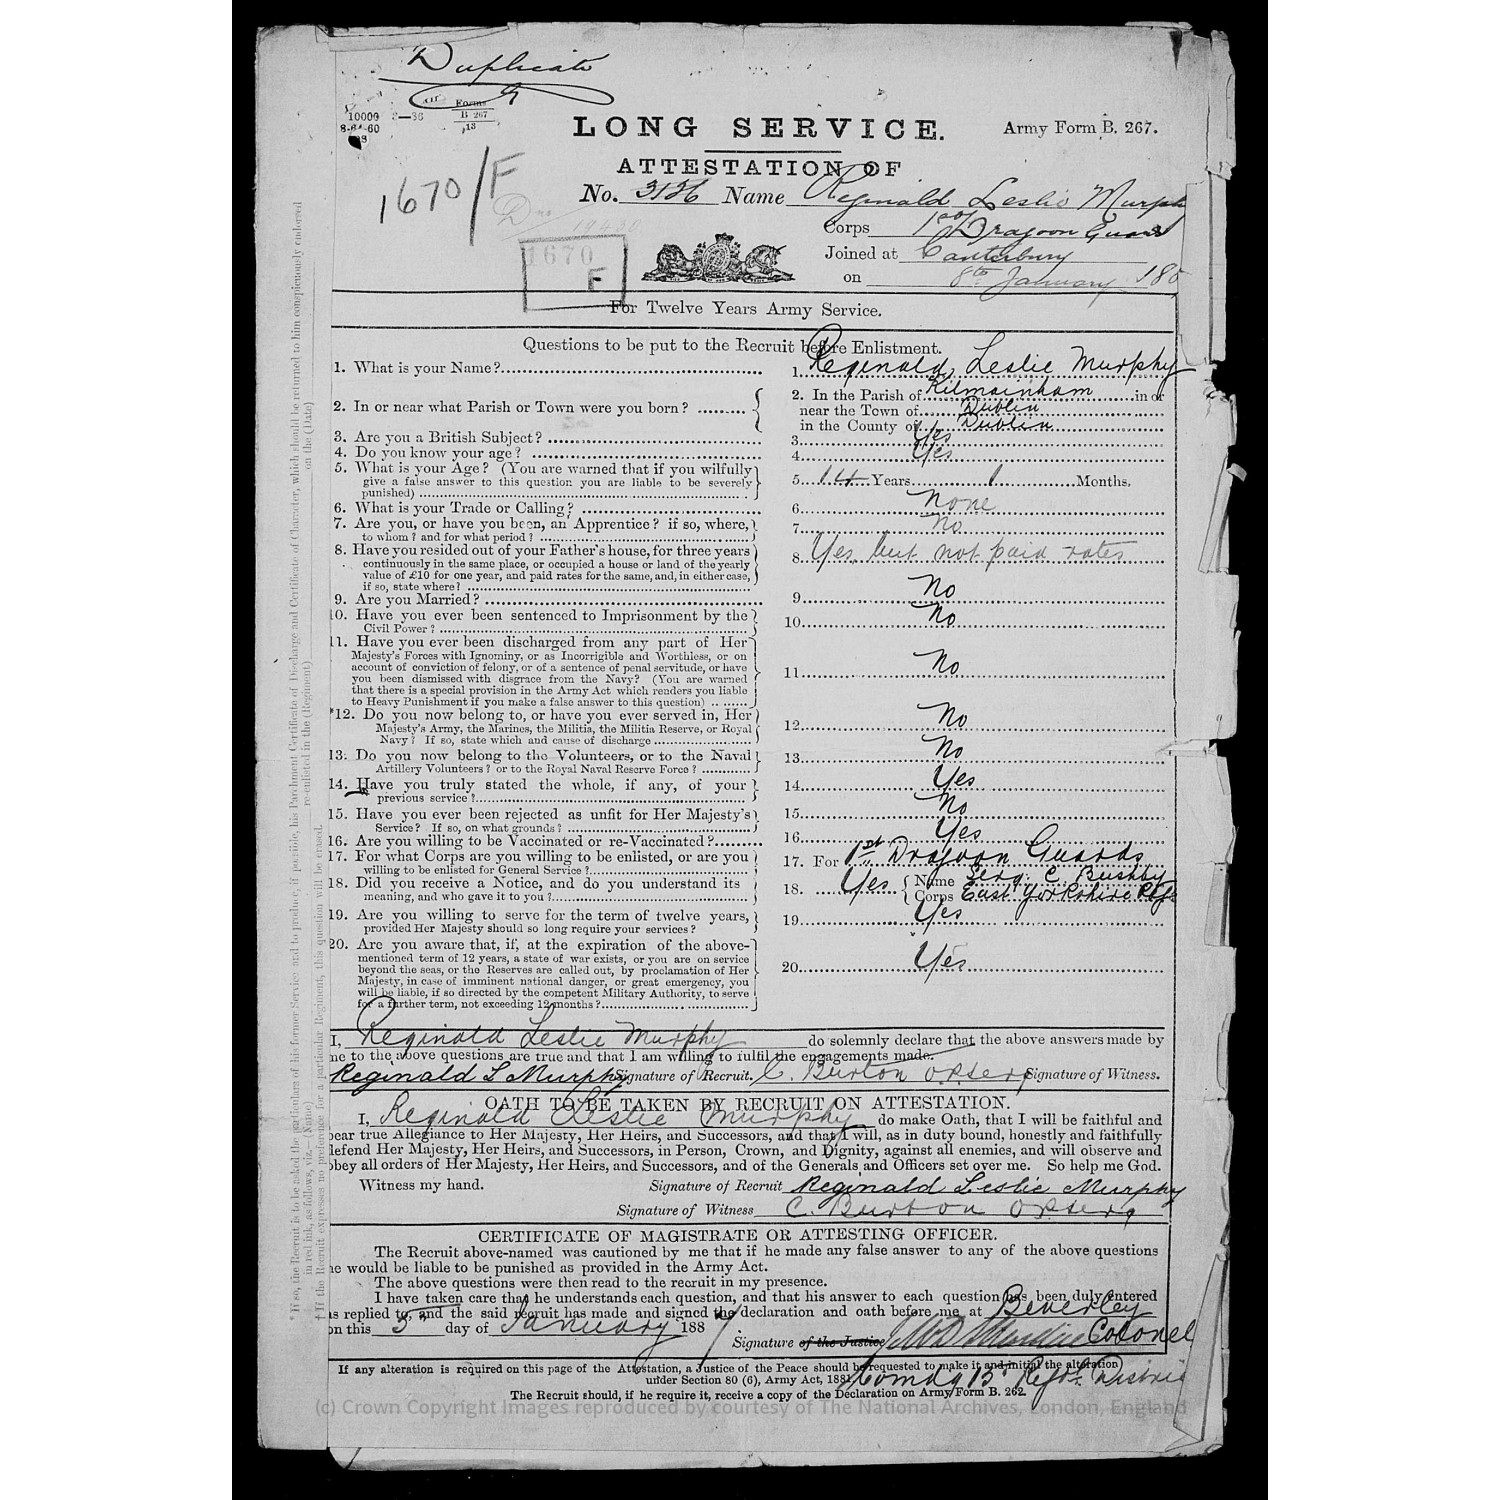 Duplicate
or Forms
10000 8—86 B 267
8-64-60 13
LONG SERVICE. Army Form B. 267.
ATTESTATION OF
1670/F
No. 3126 Name Reginald Leslie Murph
Corps 1st Dragoon Guards
1670
F
Joined at Canterbury
on 8th January 188
For Twelve Years Army Service.
Questions to be put to the Recruit before Enlistment.
1. What is your Name? 1. Reginald Leslie Murphy
2. In or near what Parish or Town were you born? 2. In the Parish of Kilmainham in or
near the Town of Dublin
in the County of Dublin
3. Are you a British Subject? 3. Yes
4. Do you know your age? 4. Yes
5. What is your Age? (You are warned that if you wilfully 5. 14 Years 1 Months.
give a false answer to this question you are liable to be severely
punished)
6. What is your Trade or Calling? 6. None
7. Are you, or have you been, an Apprentice? if so, where, 7. No
to whom? and for what period?
8. Have you resided out of your Father's house, for three years 8. Yes but not paid rates
continuously in the same place, or occupied a house or land of the yearly
value of £10 for one year, and paid rates for the same, and, in either case,
if so, state where?
9. Are you Married? 9. No
10. Have you ever been sentenced to Imprisonment by the 10. No
Civil Power?
11. Have you ever been discharged from any part of Her 11. No
Majesty's Forces with Ignominy, or as Incorrigible and Worthless, or on
account of conviction of felony, or of a sentence of penal servitude, or have
you been dismissed with disgrace from the Navy? (You are warned
that there is a special provision in the Army Act which renders you liable
to Heavy Punishment if you make a false answer to this question)
*12. Do you now belong to, or have you ever served in, Her 12. No
Majesty's Army, the Marines, the Militia, the Militia Reserve, or Royal
Navy? If so, state which and cause of discharge
13. Do you now belong to the Volunteers, or to the Naval 13. No
Artillery Volunteers? or to the Royal Naval Reserve Force?
14. Have you truly stated the whole, if any, of your 14. Yes
previous service?
15. Have you ever been rejected as unfit for Her Majesty's 15. No
Service? If so, on what grounds?
16. Are you willing to be Vaccinated or re-Vaccinated? 16. Yes
17. For what Corps are you willing to be enlisted, or are you 17. For 1st Dragoon Guards
willing to be enlisted for General Service?
18. Did you receive a Notice, and do you understand its 18. Yes Name Serg. C. Bushby
meaning, and who gave it to you? Corps East Yorkshire Regt
19. Are you willing to serve for the term of twelve years, 19. Yes
provided Her Majesty should so long require your services?
20. Are you aware that, if, at the expiration of the above- 20. Yes
mentioned term of 12 years, a state of war exists, or you are on service
beyond the seas, or the Reserves are called out, by proclamation of Her
Majesty, in case of imminent national danger, or great emergency, you
will be liable, if so directed by the competent Military Authority, to serve
for a further term, not exceeding 12 months?
I, Reginald Leslie Murphy do solemnly declare that the above answers made by
me to the above questions are true and that I am willing to fulfil the engagements made.
Reginald L Murphy Signature of Recruit. C. Burton Signature of Witness.
OATH TO BE TAKEN BY RECRUIT ON ATTESTATION.
I, Reginald Leslie Murphy do make Oath, that I will be faithful and
bear true Allegiance to Her Majesty, Her Heirs, and Successors, and that I will, as in duty bound, honestly and faithfully
defend Her Majesty, Her Heirs, and Successors, in Person, Crown, and Dignity, against all enemies, and will observe and
obey all orders of Her Majesty, Her Heirs, and Successors, and of the Generals and Officers set over me. So help me God.
Witness my hand. Signature of Recruit Reginald Leslie Murphy
Signature of Witness C. Burton
CERTIFICATE OF MAGISTRATE OR ATTESTING OFFICER.
The Recruit above-named was cautioned by me that if he made any false answer to any of the above questions
he would be liable to be punished as provided in the Army Act.
The above questions were then read to the recruit in my presence.
I have taken care that he understands each question, and that his answer to each question has been duly entered
as replied to, and the said recruit has made and signed the declaration and oath before me at Beverley
on this 5th day of January 1887
Signature of the Justice Colonel
If any alteration is required on this page of the Attestation, a Justice of the Peace should be requested to make it and initial the alteration
under Section 80 (6), Army Act, 1881. Comdg 15 Regtl Distric
The Recruit should, if he require it, receive a copy of the Declaration on Army Form B. 262.
(c) Crown Copyright Images reproduced by courtesy of The National Archives, London, England
* If so, the Recruit is to be asked the particulars of his former Service and to produce, if possible, his Parchment Certificate of Discharge and Certificate of Character, which should be returned to him conspicuously endorsed
in red ink, as follows, viz.—(Name) re-enlisted in the (Regiment) on the (Date)
† If the Recruit expresses no preference for a particular Regiment, this question will be erased.